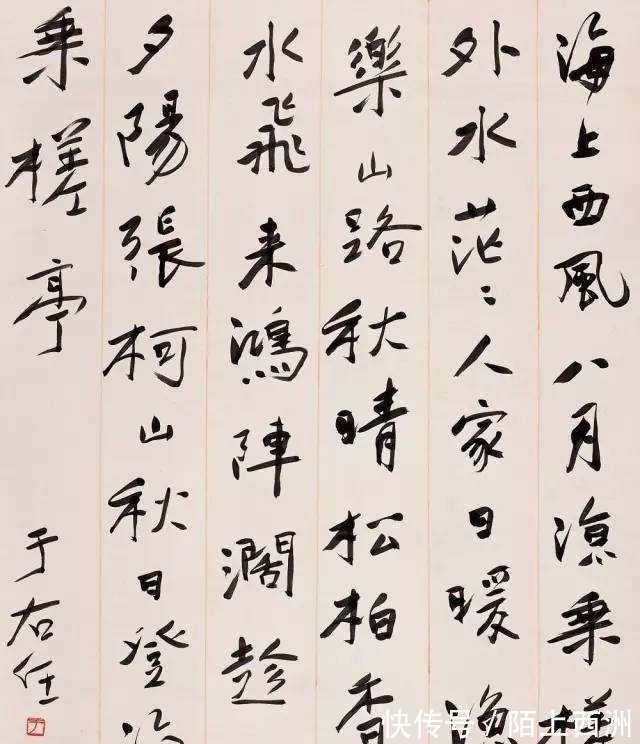 海上西風八月涼乘槎
外水茫々人家日暖漁
樂山路秋晴松柏香
水飛来鴻陣濶趁
夕陽張柯山秋日登
乘槎亭
于右任
快传号 / 陌上西洲